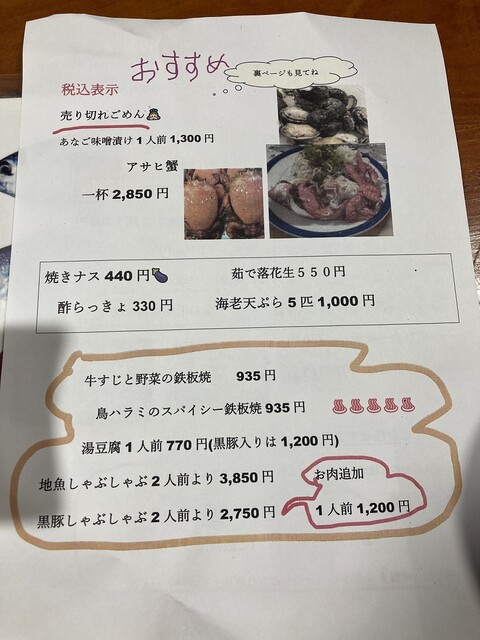 おすすめ
裏ページも見てね
税込表示
売り切れごめん
あなご味噌漬け1人前1,300円
アサヒ蟹
一杯2,850円
焼きナス440円
茹で落花生５５０円
酢らっきょ330円
海老天ぷら5匹1,000円
牛すじと野菜の鉄板焼 935円
鳥ハラミのスパイシー鉄板焼935円
湯豆腐1人前770円(黒豚入りは1,200円)
地魚しゃぶしゃぶ2人前より3,850円
お肉追加
黒豚しゃぶしゃぶ2人前より2,750円
1人前1,200円